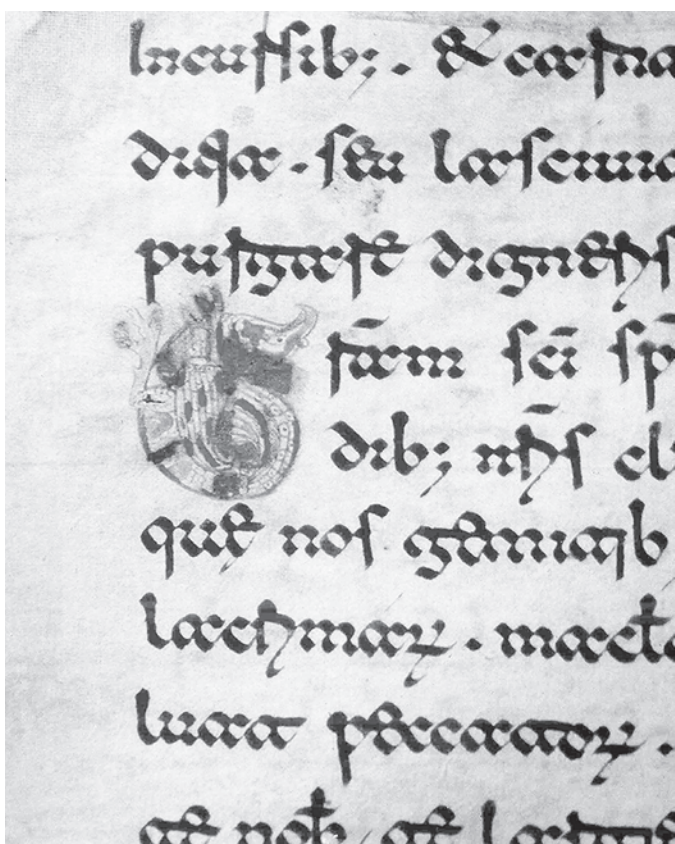 Incursib; . & carna
seu lasciuia
purgare digneris
Gr̄am sc̄i sp̄
dib; nr̄is cl
que nos gemitib
lacrimaꝝ . macl
luat peccatoꝝ .
nob